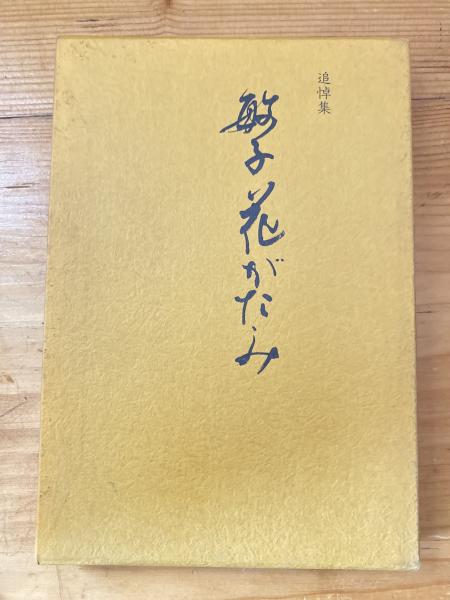 追悼集
敏子花がたみ